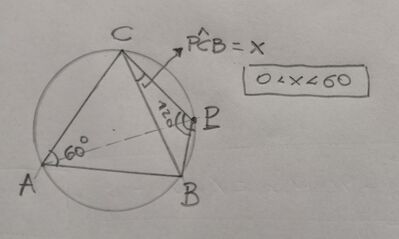 C
PĈB = x
0 < x < 60
120
P
60°
A
B